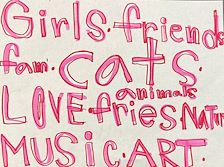 Girls·friends
fam·cats·
animals
LOVE·fries Natur
MUSIC·ART